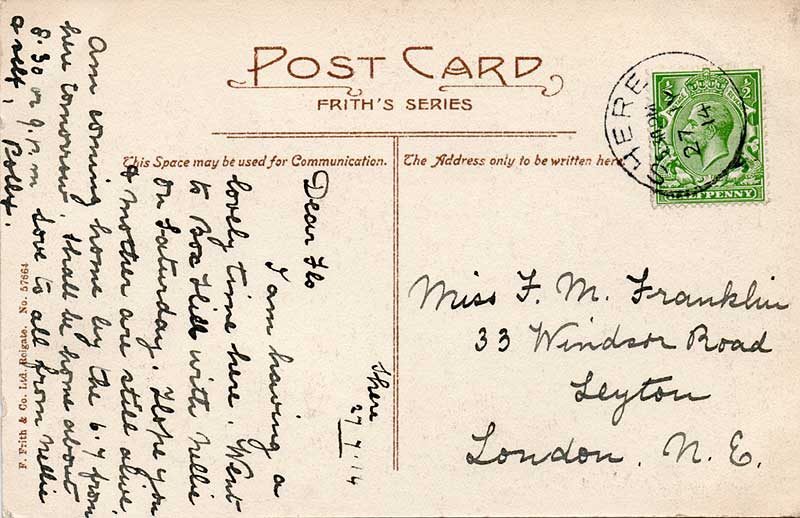 POST CARD
FRITH'S SERIES
This Space may be used for Communication.
The Address only to be written here.
SHERE
27
14
½
½
HALFPENNY
Shere
27.7.14
Dear Flo
I am having a
lovely time here. Went
to Box Hill with Nellie
on Saturday. Hope you
& mother are still alive.
Am coming home by the 6.7 from
here tomorrow, shall be home about
8.30 or 9.p.m Love to all from Nellie
& self, Polly.
Miss F. M. Franklin
33 Windsor Road
Leyton
London. N. E.
F. Frith & Co. Ltd. Reigate. No. 57664